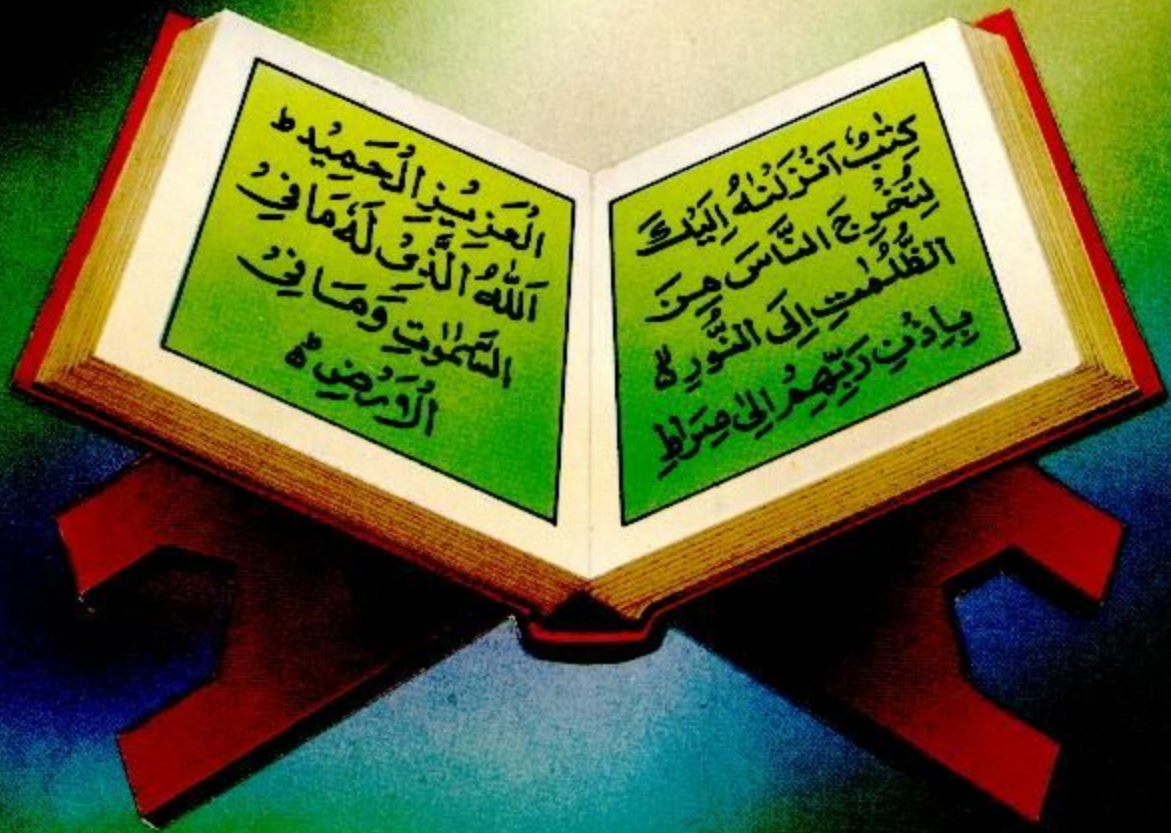 كِتٰبٌ اَنْزَلْنٰهُ اِلَيْكَ
لِتُخْرِجَ النَّاسَ مِنَ
الظُّلُمٰتِ اِلَى النُّوْرِ ۙ
بِاِذْنِ رَبِّهِمْ اِلٰى صِرَاطِ
الْعَزِيْزِ الْحَمِيْدِ ط
اَللّٰهِ الَّذِىْ لَهٗ مَا فِىْ
السَّمٰوٰتِ وَمَا فِىْ
الْاَرْضِ ؕ